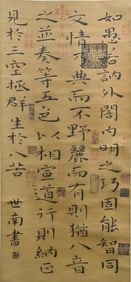 如愚若訥外闇內明之巧固能智同
文情不典而不野麗而有則猶八音
之並奏等五色以相宣道行則納正
見於三空極群生於八苦
世南書